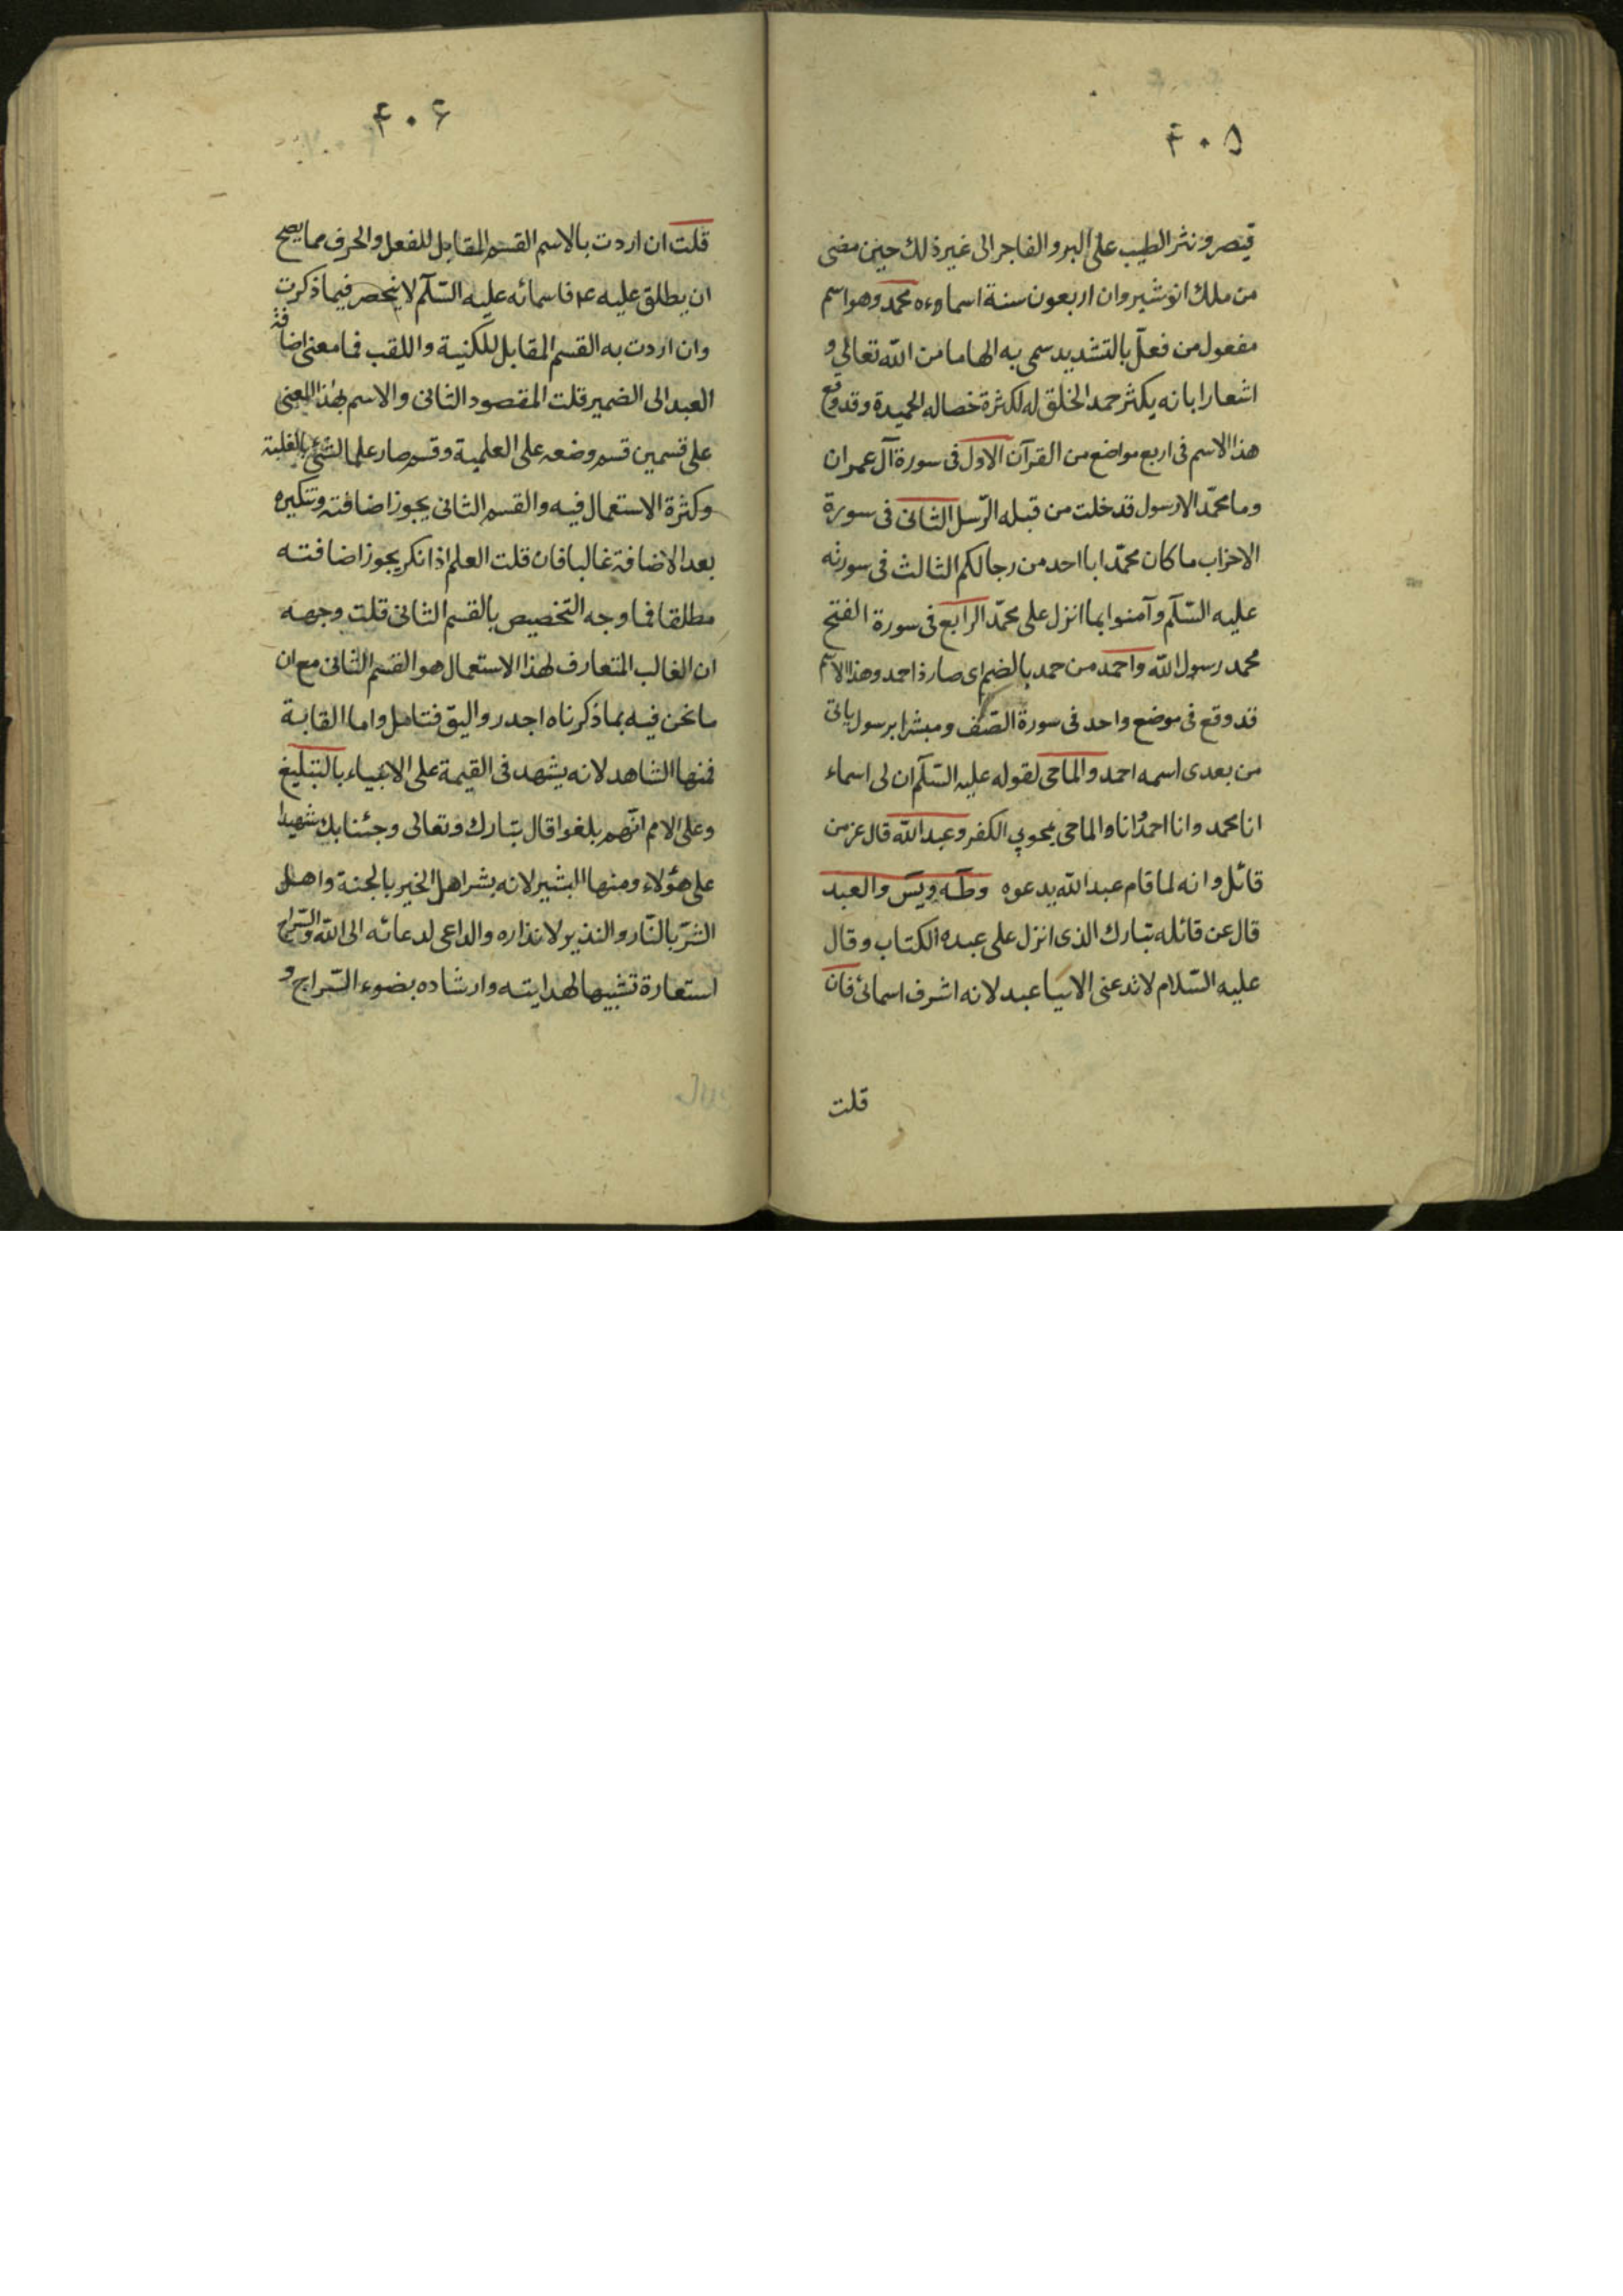 ۴۰۵
قيصر ونثر الطيب على البر والفاجر الى غير ذلك حين مضى
من ملك انوشيروان اربعون سنة اسماوءه محمد وهو اسم
مفعول من فعل بالتشديد سمى به الهاما من الله تعالى و
اشعارا بانه يكثر حمد الخلق له لكثرة خصاله الحميدة وقد وقع
هذا الاسم فى اربع مواضع من القرآن الاول فى سورة آل عمران
وما محمّد الا رسول قد خلت من قبله الرّسل الثانى فى سورة
الاحزاب ما كان محمّد ابا احد من رجالكم الثالث فى سورته
عليه السّلم وآمنوا بما انزل على محمّد الرابع فى سورة الفتح
محمد رسول الله واحمد من حمد بالضم اى صار ذا حمد وهذا الاسم
قد وقع فى موضع واحد فى سورة الصّف ومبشرا برسول ياتى
من بعدى اسمه احمد والماحى لقوله عليه السّلم ان لى اسماء
انا محمد وانا احمد وانا الماحى يمحو بى الكفر وعبد الله قال عز من
قائل وانه لما قام عبد الله يدعوه وطه ويس والعبد
قال عن قائله تبارك الذى انزل على عبده الكتاب وقال
عليه السّلام لا تدعنى الا بيا عبد لانه اشرف اسمائى فان
قلت
۴۰۶
قلت ان اردت بالاسم القسم المقابل للفعل والحرف مما يصح
ان يطلق عليه ع۴ فاسمائه عليه السّلم لا ينحصر فيما ذكرت
وان اردت به القسم المقابل للكنية واللقب فما معنى اضافة
العبد الى الضمير قلت المقصود الثانى والاسم بهذا المعنى
على قسمين قسم وضعه على العلمية وقسم صار علما لشئ بالغلبة
وكثرة الاستعمال فيه والقسم الثانى يجوز اضافته وتنكيره
بعد الاضافة غالبا فان قلت العلم اذا نكر يجوز اضافته
مطلقا فما وجه التخصيص بالقسم الثانى قلت وجهه
ان الغالب المتعارف لهذا الاستعمال هو القسم الثانى مع ان
ما نحن فيه بما ذكرناه اجدر واليق فتامل واما القابة
فمنها الشاهد لانه يشهد فى القيمة على الانبياء بالتبليغ
وعلى الامم انّهم بلغوا قال تبارك وتعالى وجئنا بك شهيدا
على هؤلاء ومنها البشير لانه بشر اهل الخير بالجنة واهل
الشرّ بالنّار والنذير لانذاره والداعى لدعائه الى الله والسّراج
استعارة تشبيها لهدايته وارشاده بضوء السّراج و